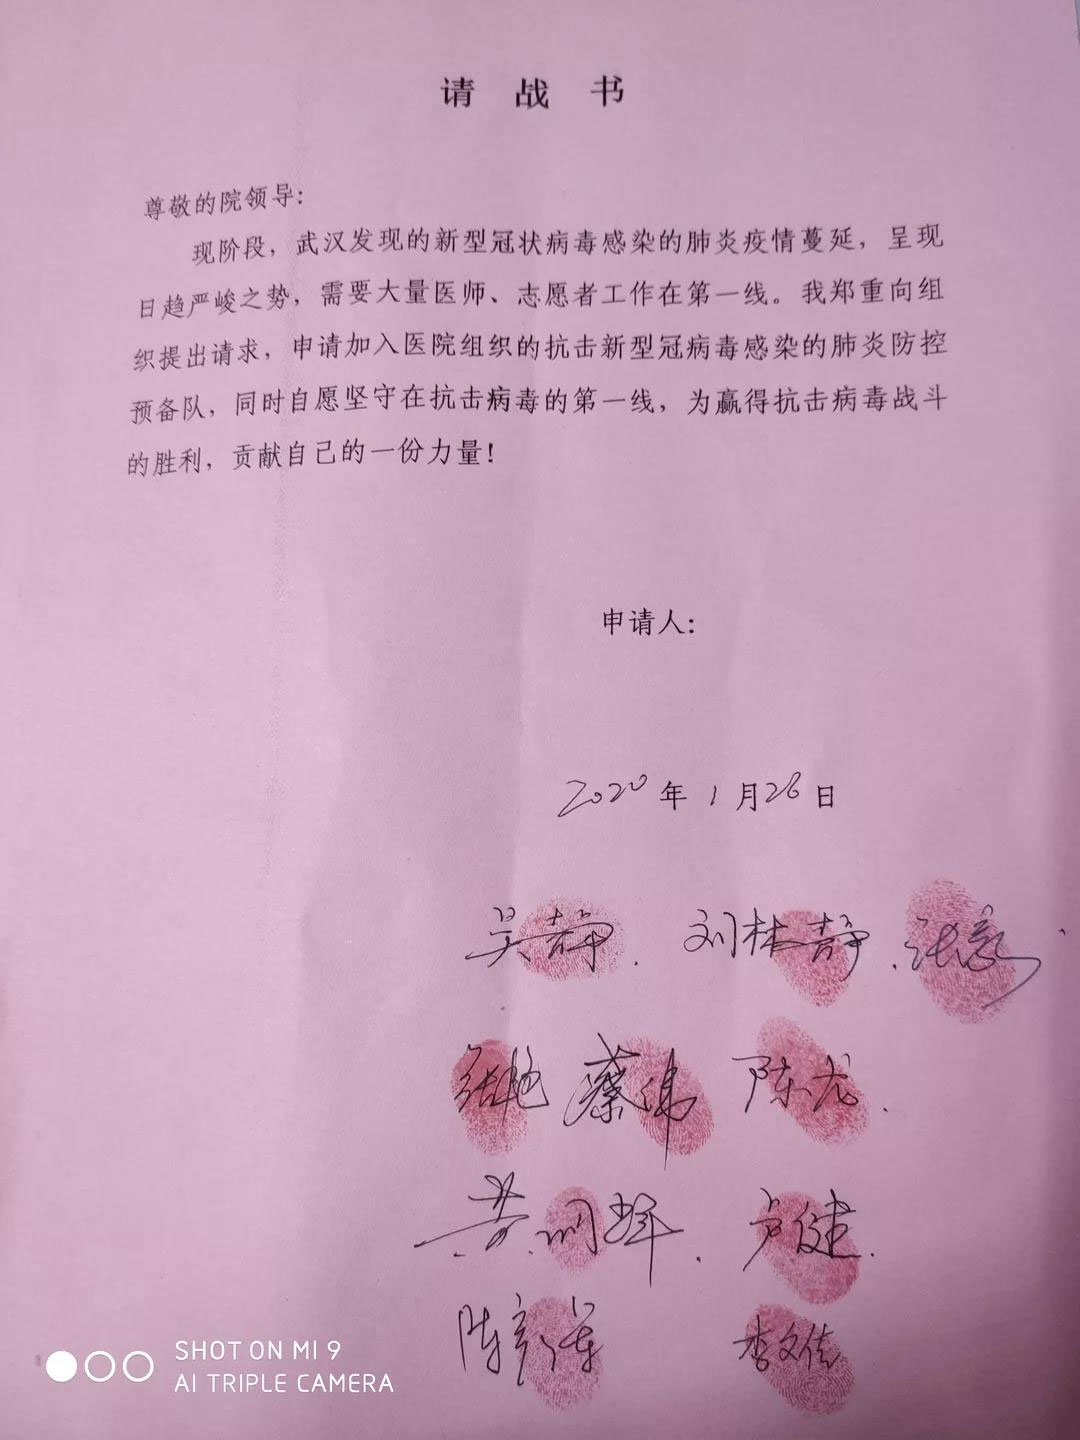 请 战 书
尊敬的院领导：
现阶段，武汉发现的新型冠状病毒感染的肺炎疫情蔓延，呈现
日趋严峻之势，需要大量医师、志愿者工作在第一线。我郑重向组
织提出请求，申请加入医院组织的抗击新型冠病毒感染的肺炎防控
预备队，同时自愿坚守在抗击病毒的第一线，为赢得抗击病毒战斗
的胜利，贡献自己的一份力量！
申请人：
2020年1月26日
吴静. 刘林静.
张艳 蔡伟 陈龙.
黄明辉. 卢健.
陈彦 李文佳
SHOT ON MI 9
AI TRIPLE CAMERA